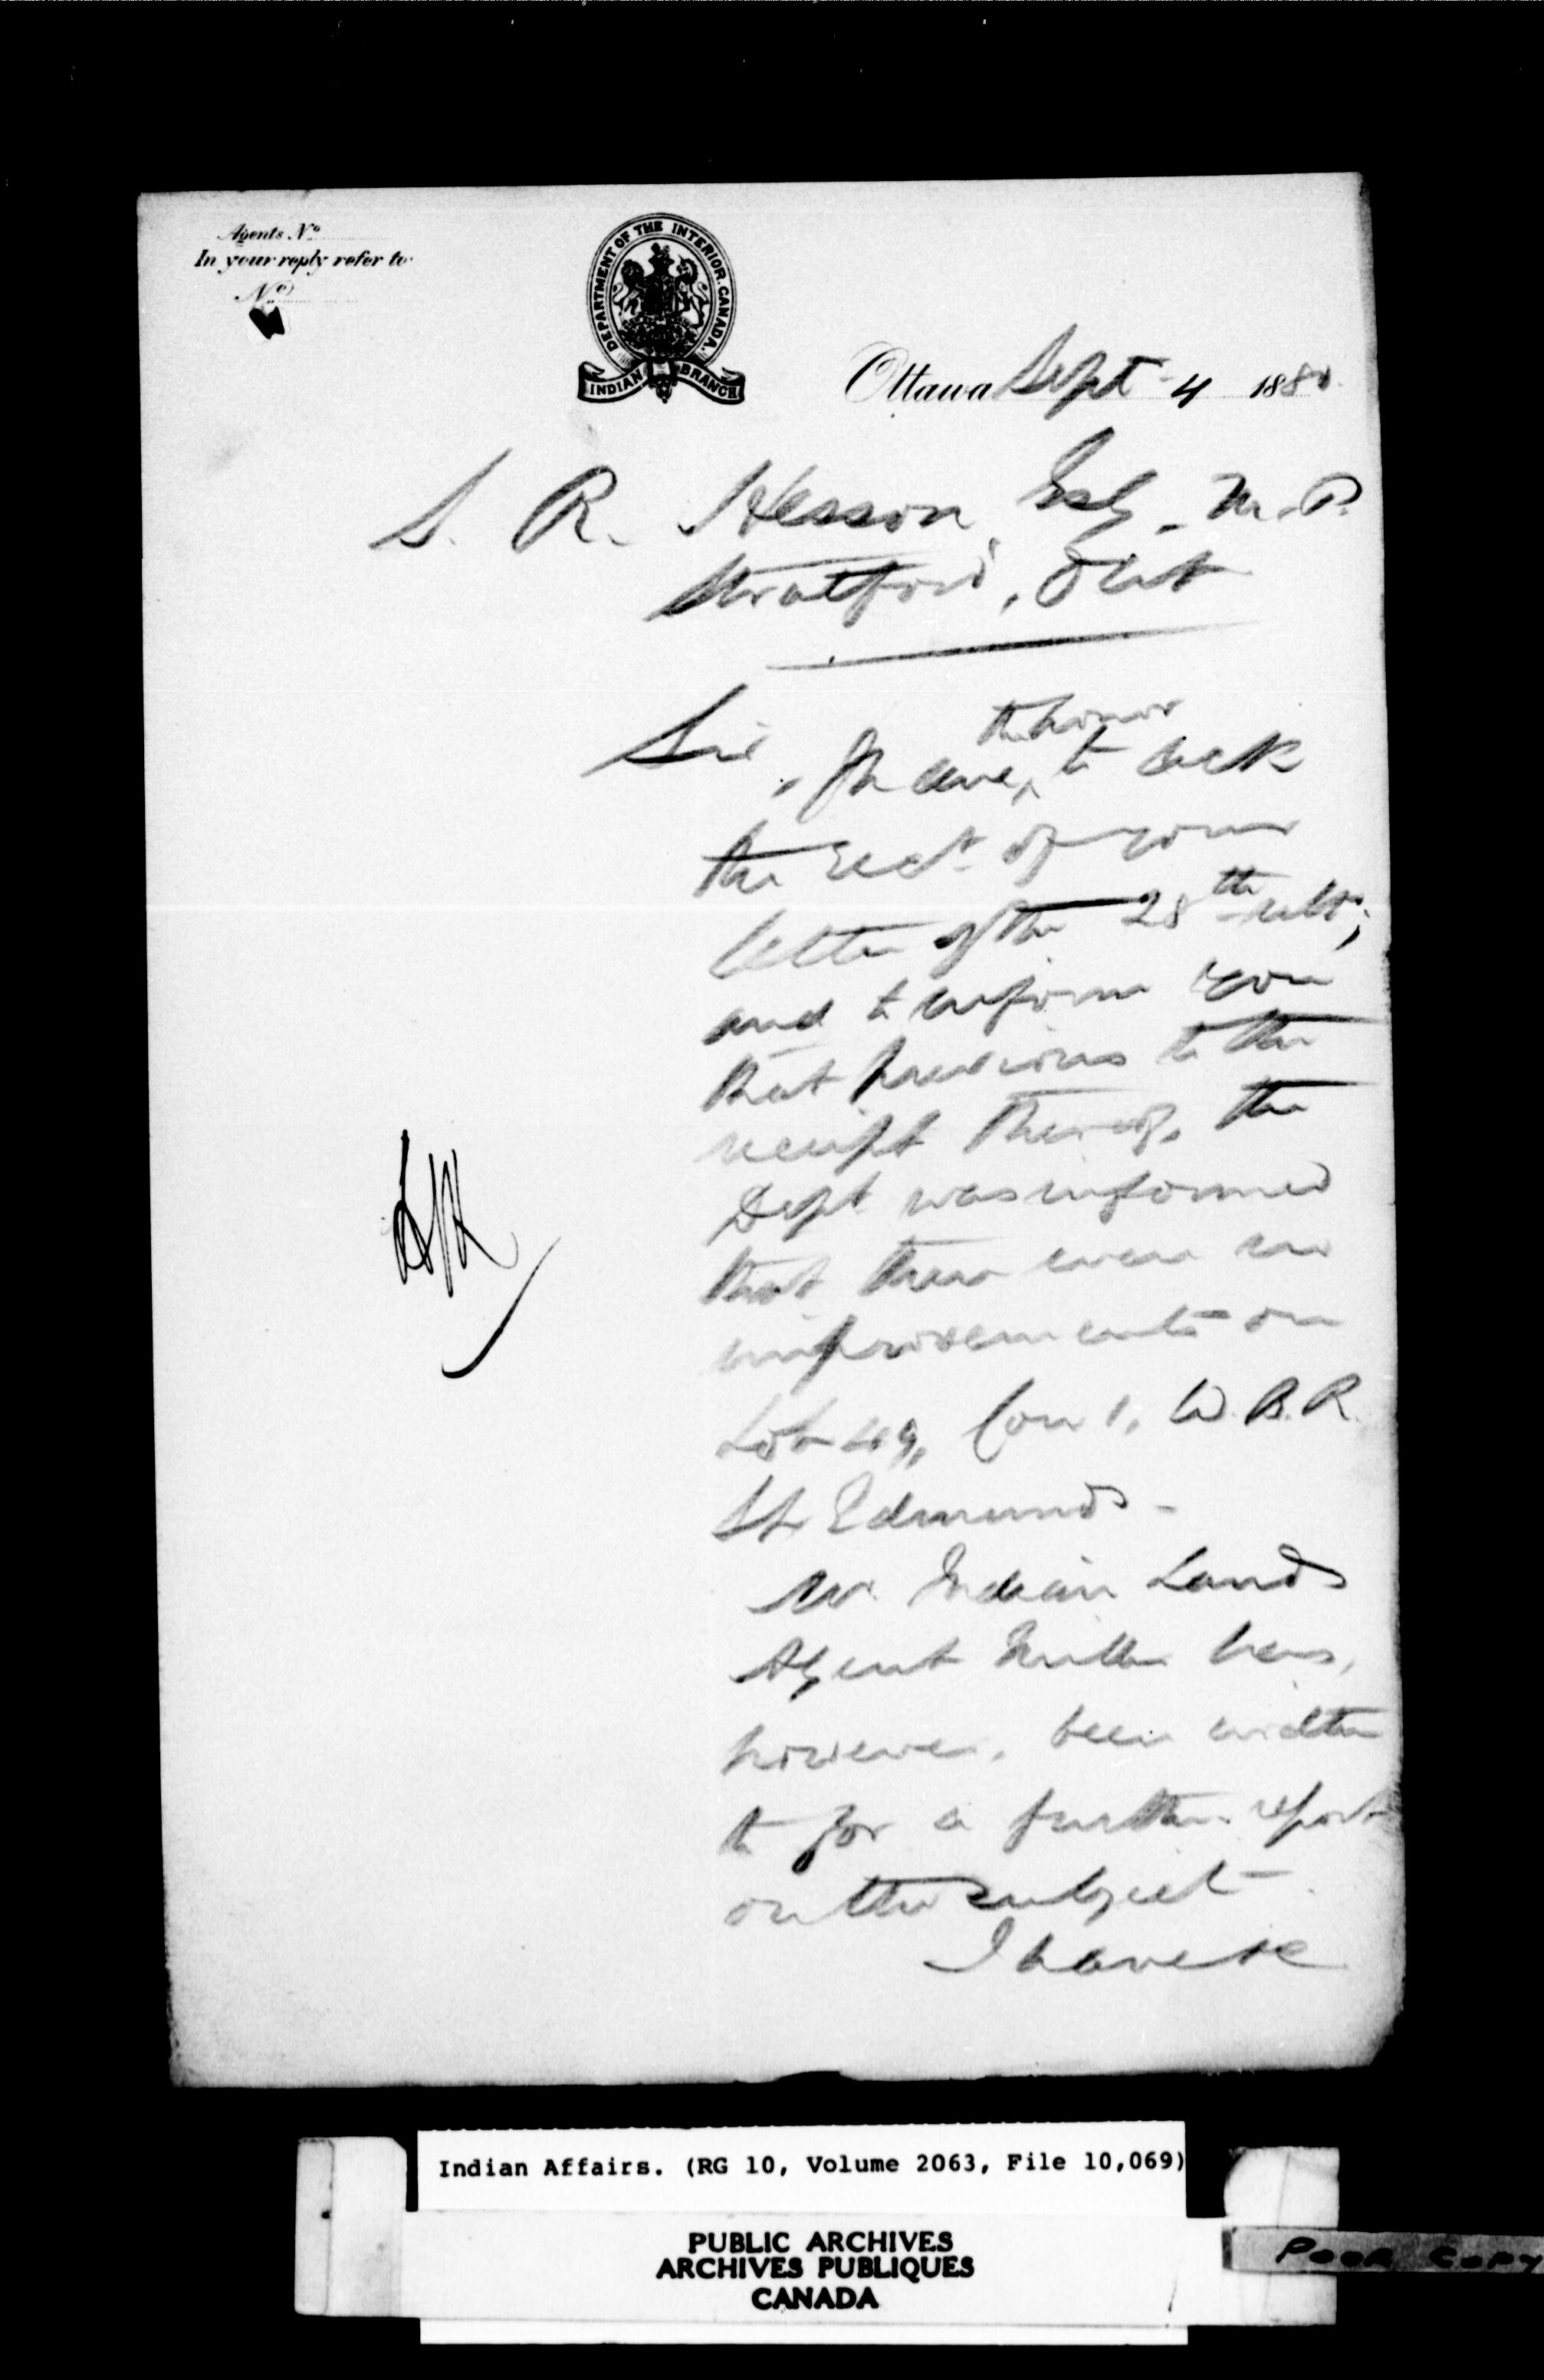 Agents No
In your reply refer to
No
DEPARTMENT OF THE INTERIOR. CANADA.
INDIAN BRANCH
Ottawa Sept 4 1880
S. R. Hesson, Esq. M.P.
Stratford, Ont
Sir, I have the honor to ack
the rect. of your
letter of the 28th ult;
and to inform you
that previous to the
receipt thereof, the
Dept was informed
that there were no
improvements on
Lot 49, Con 1, W.B.R.
St Edmunds -
Mr. Indian Lands
Agent Miller has,
however, been written
to for a further report
on the subject.
I have &c
Indian Affairs. (RG 10, Volume 2063, File 10,069)
PUBLIC ARCHIVES
ARCHIVES PUBLIQUES
CANADA
POOR COPY